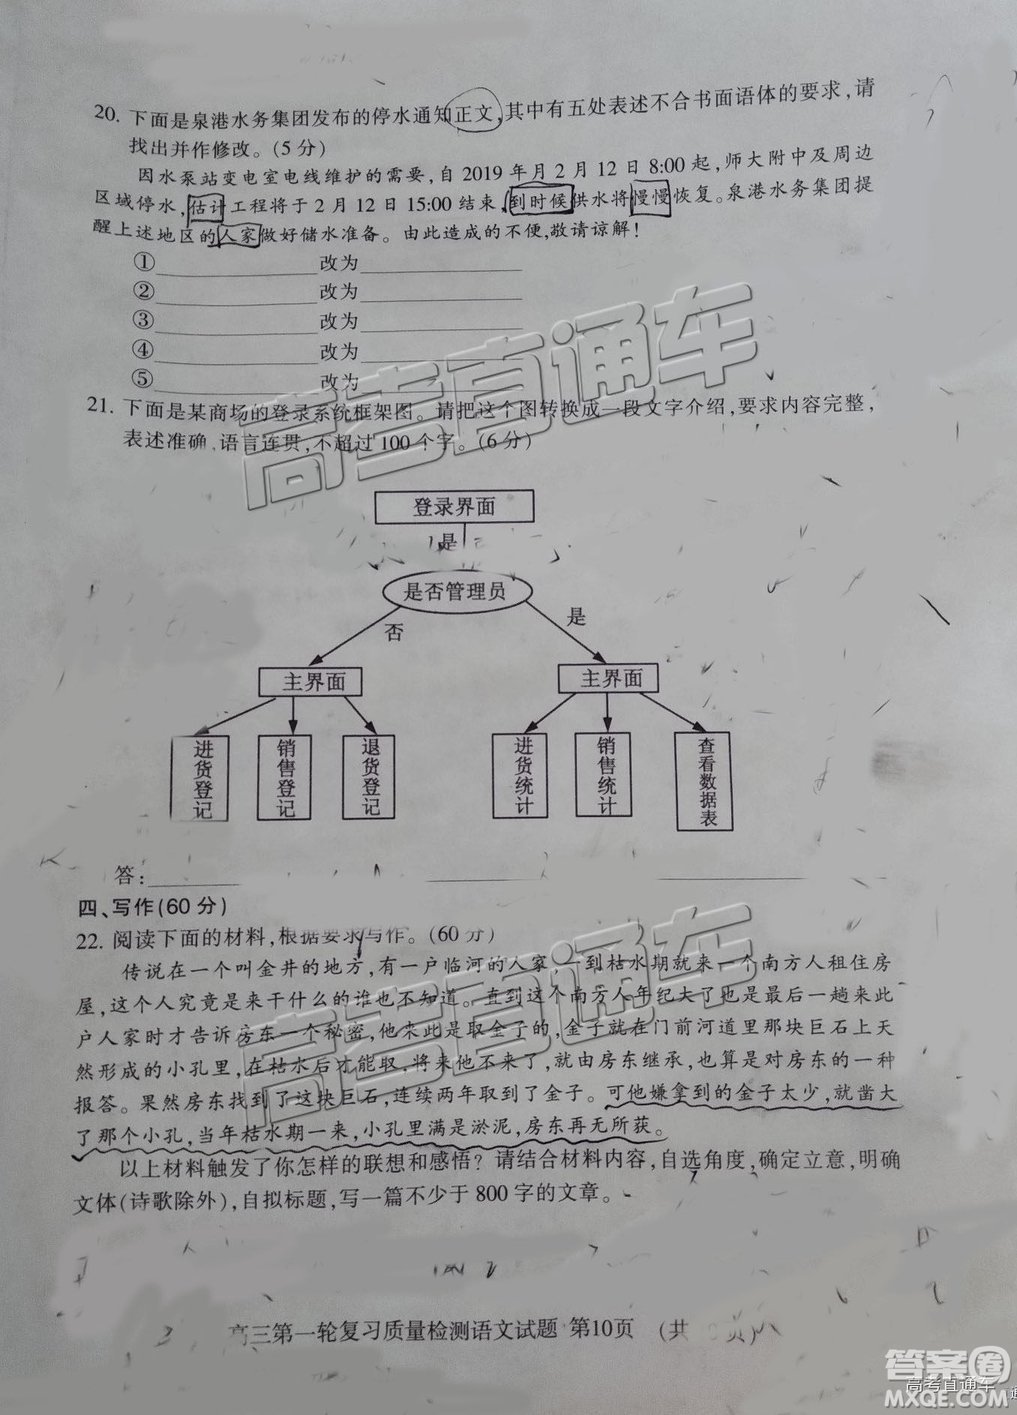 20. 下面是泉港水务集团发布的停水通知正文,其中有五处表述不合书面语体的要求,请
找出并作修改。(5分)
因水泵站变电室电线维护的需要,自2019年月2月12日8:00起,师大附中及周边
区域停水,估计工程将于2月12日15:00结束,到时候供水将慢慢恢复。泉港水务集团提
醒上述地区的人家做好储水准备。由此造成的不便,敬请谅解!
①____________改为____________
②____________改为____________
③____________改为____________
④____________改为____________
⑤____________改为____________
21. 下面是某商场的登录系统框架图。请把这个图转换成一段文字介绍,要求内容完整,
表述准确,语言连贯,不超过100个字。(6分)
登录界面
是
是否管理员
否
是
主界面
主界面
进货登记
销售登记
退货登记
进货统计
销售统计
查看数据表
答:____________
四、写作(60分)
22. 阅读下面的材料,根据要求写作。(60分)
传说在一个叫金井的地方,有一户临河的人家,一到枯水期就来一个南方人租住房
屋,这个人究竟是来干什么的谁也不知道。直到这个南方人年纪大了也是最后一趟来此
户人家时才告诉房东一个秘密,他来此是取金子的,金子就在门前河道里那块巨石上天
然形成的小孔里,在枯水后才能取,将来他不来了,就由房东继承,也算是对房东的一种
报答。果然房东找到了这块巨石,连续两年取到了金子。可他嫌拿到的金子太少,就凿大
了那个小孔,当年枯水期一来,小孔里满是淤泥,房东再无所获。
以上材料触发了你怎样的联想和感悟?请结合材料内容,自选角度,确定立意,明确
文体(诗歌除外),自拟标题,写一篇不少于800字的文章。
高三第一轮复习质量检测语文试题 第10页 (共 页)
高考直通车
高考直通车
答案圈
高考直通车